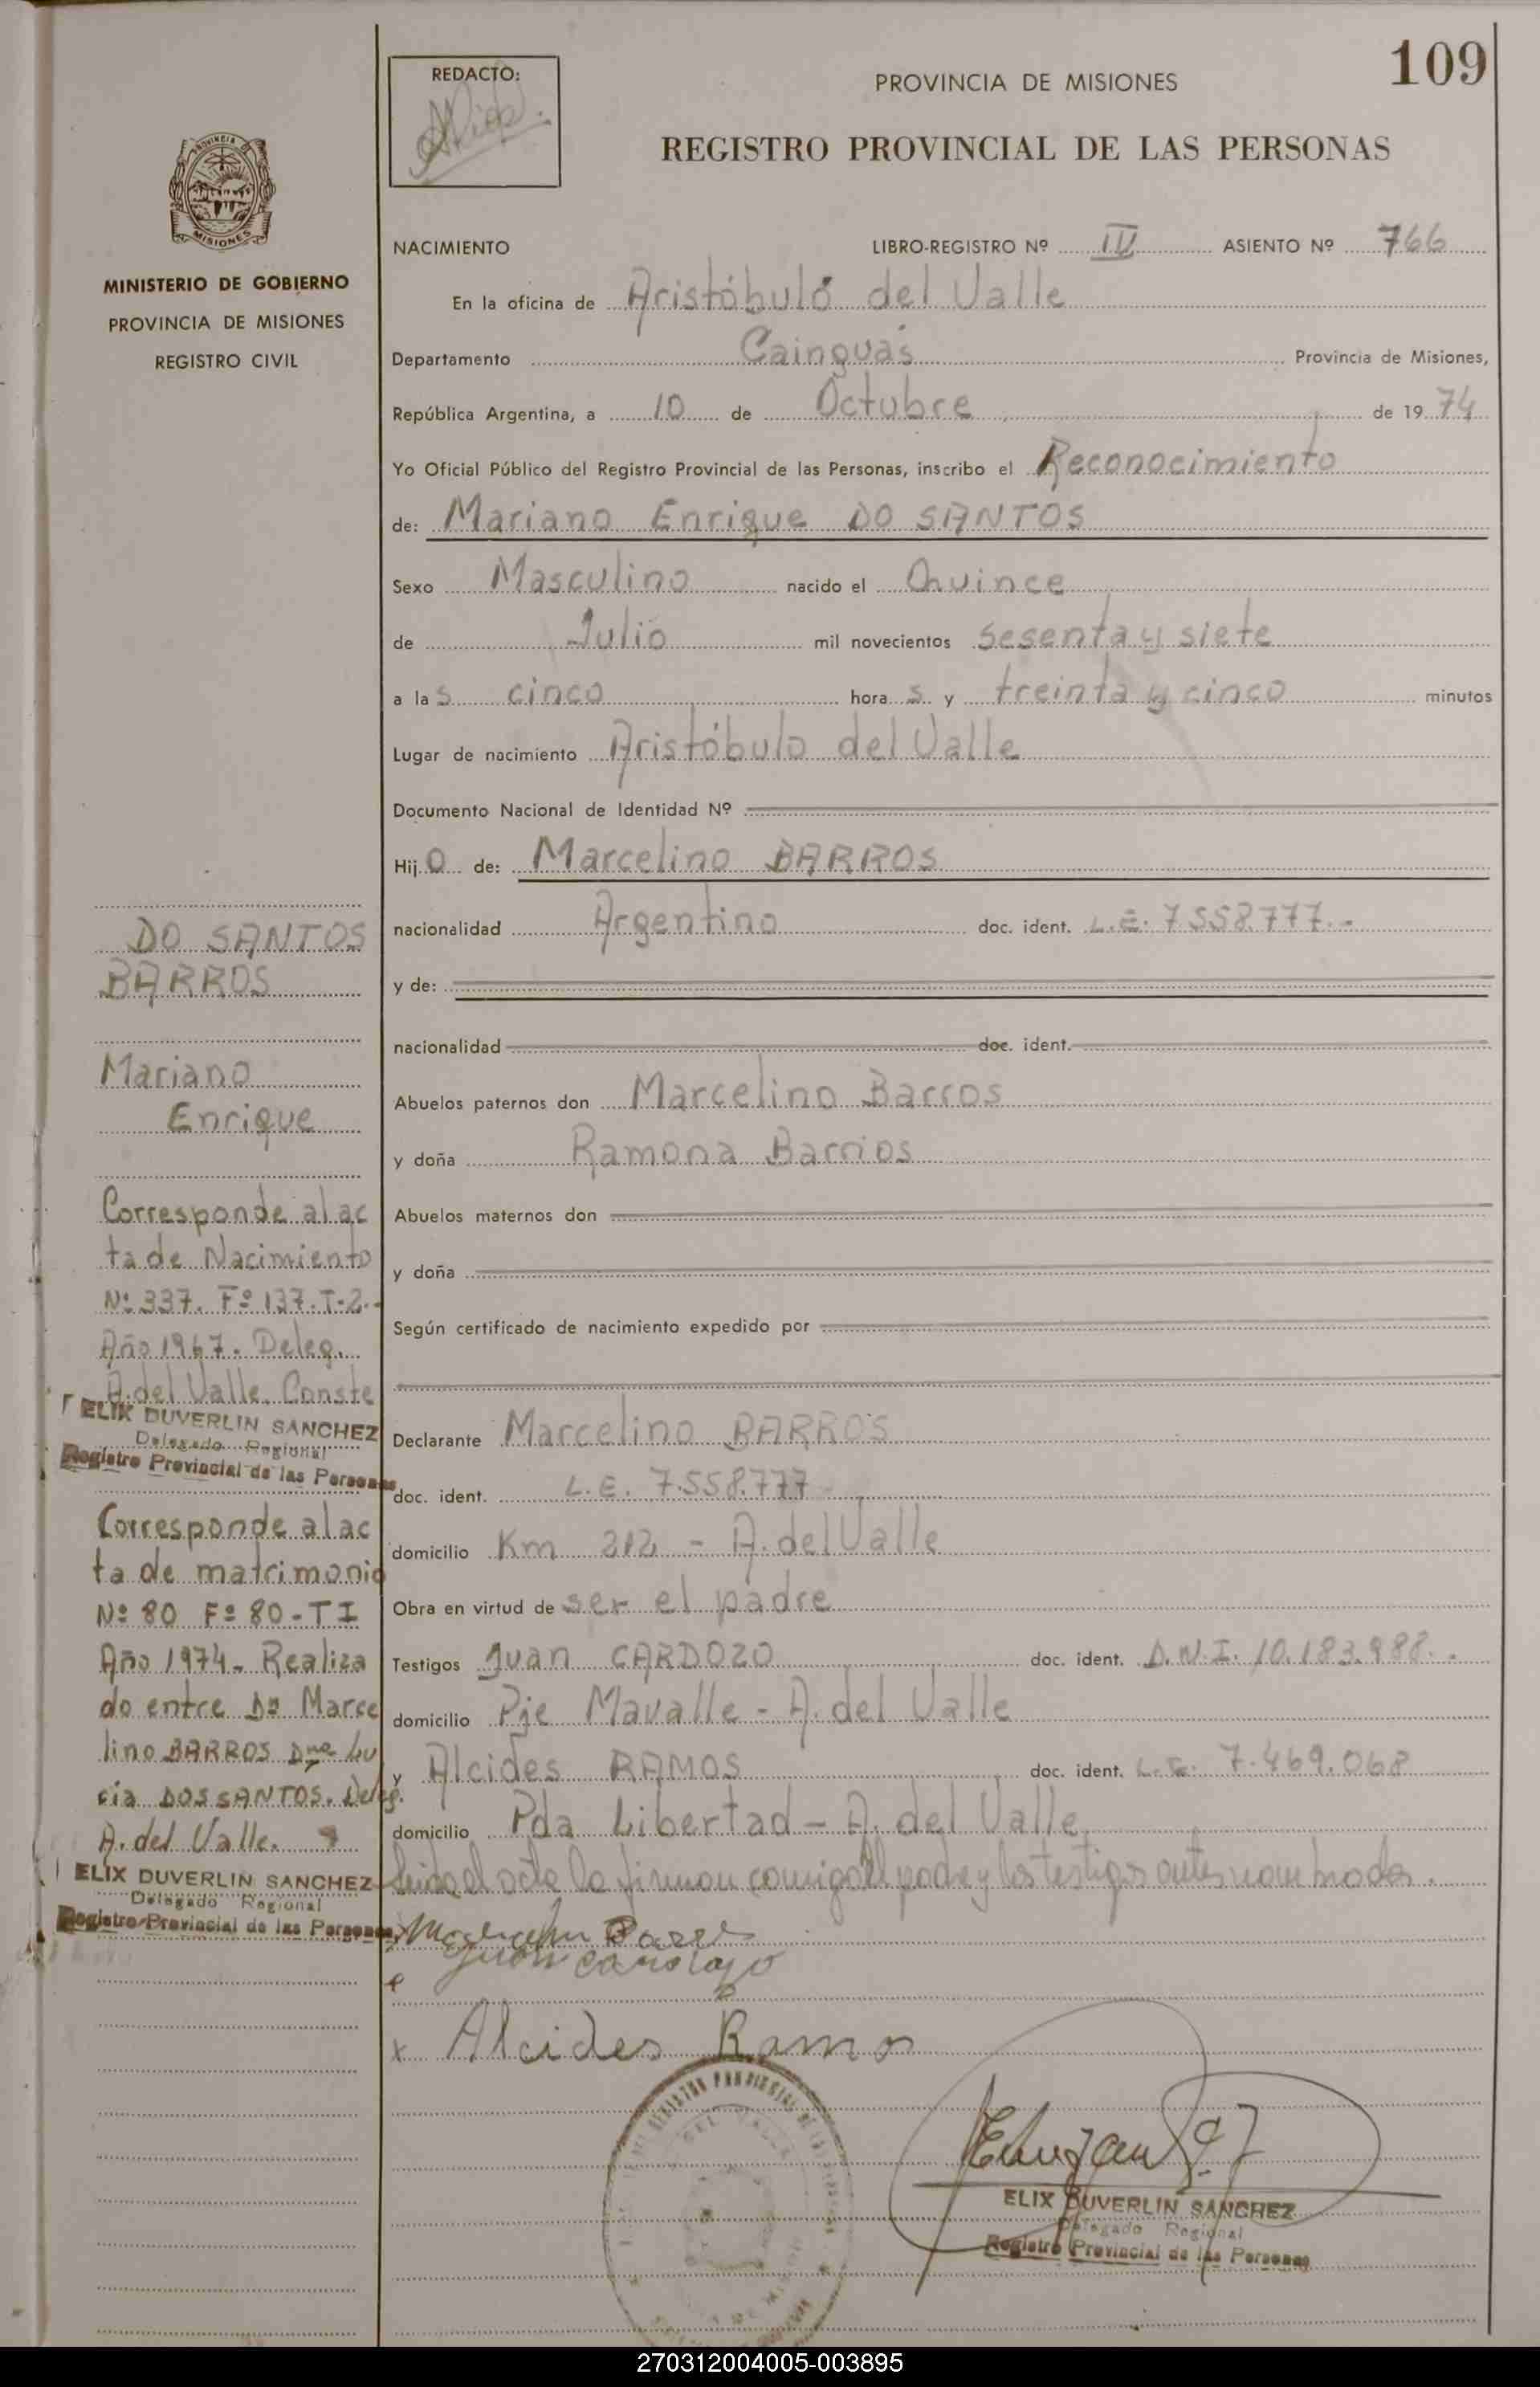 109
REDACTO:
PROVINCIA DE MISIONES
REGISTRO PROVINCIAL DE LAS PERSONAS
MISIONES
MINISTERIO DE GOBIERNO
PROVINCIA DE MISIONES
REGISTRO CIVIL
NACIMIENTO LIBRO-REGISTRO Nº IV ASIENTO Nº 766
En la oficina de Aristóbulo del Valle
Departamento Cainguás Provincia de Misiones,
República Argentina, a 10 de Octubre de 1974
Yo Oficial Público del Registro Provincial de las Personas, inscribo el Reconocimiento
de: Mariano Enrique DO SANTOS
Sexo Masculino nacido el Quince
de Julio mil novecientos sesenta y siete
a las cinco horas y treinta y cinco minutos
Lugar de nacimiento Aristóbulo del Valle
Documento Nacional de Identidad Nº
Hijo de: Marcelino BARROS
nacionalidad Argentino doc. ident. L.E. 7.558.777.-
y de:
nacionalidad doc. ident.
Abuelos paternos don Marcelino Barros
y doña Ramona Barrios
Abuelos maternos don
y doña
Según certificado de nacimiento expedido por
Declarante Marcelino BARROS
doc. ident. L.E. 7.558.777
domicilio Km 212 - A. del Valle
Obra en virtud de ser el padre
Testigos Juan CARDOZO doc. ident. D.N.I. 10.183.988.-
domicilio Pje Mavalle - A. del Valle
y Alcides RAMOS doc. ident. L.E. 7.469.068
domicilio Pda Libertad - A. del Valle
Leida el acta la firman comigo el padre y los testigos antes nombrados.
Alcides Ramos
ELIX DUVERLIN SANCHEZ
Delegado Regional
Registro Provincial de las Personas
DO SANTOS
BARROS
Mariano
Enrique
Corresponde al ac
ta de Nacimiento
Nº 337. Fº 137. T-2.-
Año 1967. Deleg.
A. del Valle. Conste
ELIX DUVERLIN SANCHEZ
Delegado Regional
Registro Provincial de las Personas
Corresponde al ac
ta de matrimonio
Nº 80 Fº 80 - T I
Año 1974. Realiza
do entre Dº Marce
lino BARROS Dña Lu
cía DOS SANTOS. Deleg.
A. del Valle.
ELIX DUVERLIN SANCHEZ
Delegado Regional
Registro Provincial de las Personas
270312004005-003895